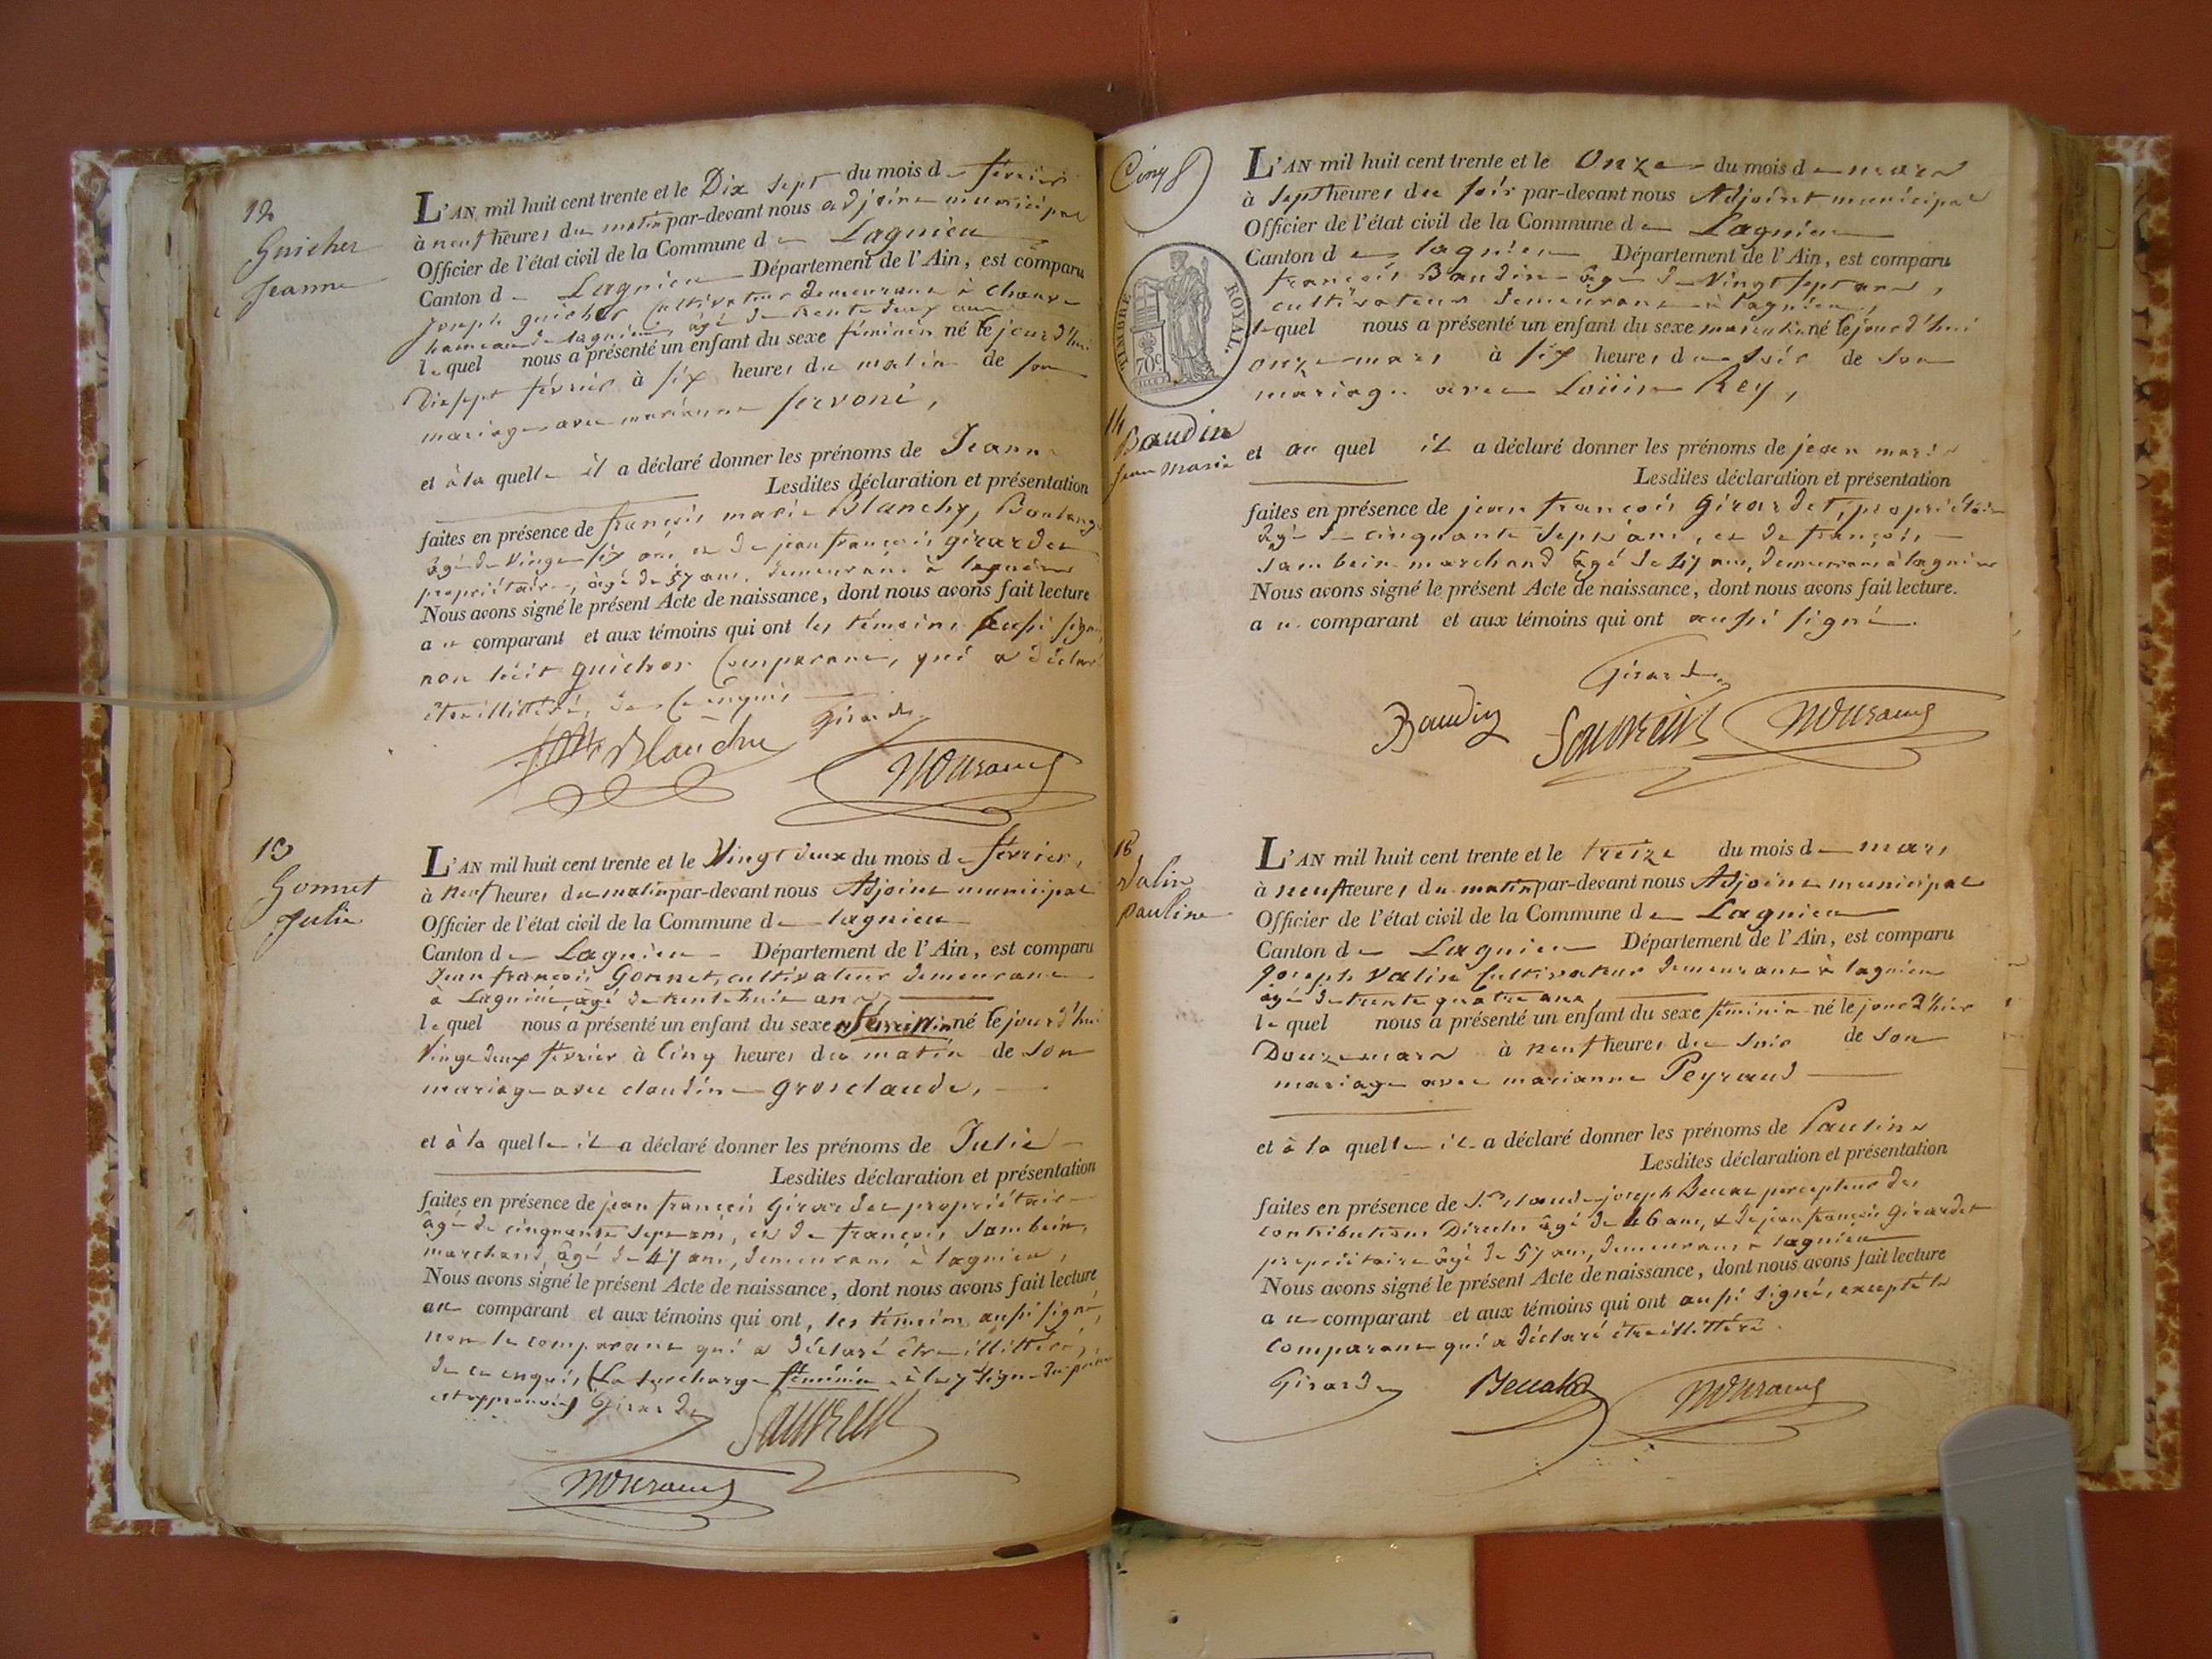 12
Guicher
Jeanne
L'AN mil huit cent trente et le Dix sept du mois de février
à neuf heures du matin par-devant nous adjoint municipal
Officier de l'état civil de la Commune de Lagnieu
Canton de Lagnieu Département de l'Ain, est comparu
joseph guicher Cultivateur demeurant à
hameau de lagnieu, âgé de trente deux ans
lequel nous a présenté un enfant du sexe féminin né le jourd'hui
Dix sept février à six heures du matin de son
mariage avec marianne servoni,
et à la quelle il a déclaré donner les prénoms de Jeanne
Lesdites déclaration et présentation
faites en présence de françois marie Blanchy, Boulanger
âgé de Vingt six ans et de jean françois girardet
propriétaire, âgé de 57 ans, demeurans à lagnieu
Nous avons signé le présent Acte de naissance, dont nous avons fait lecture
au comparant et aux témoins qui ont les témoins aussi signé,
non ledit guicher Comparant, qui a déclaré
être illittéré, de ce enquis
Girardet
13
Gonnet
Julie
L'AN mil huit cent trente et le Vingt deux du mois de février,
à neuf heures du matin par-devant nous Adjoint municipal
Officier de l'état civil de la Commune de lagnieu
Canton de Lagnieu Département de l'Ain, est comparu
Jean françois Gonnet, cultivateur demeurant
à Lagnieu, âgé de trente huit ans,
lequel nous a présenté un enfant du sexe féminin né le jourd'hui
Vingt deux février à Cinq heures du matin de son
mariage avec claudine grosclaude,
et à la quelle il a déclaré donner les prénoms de Julie
Lesdites déclaration et présentation
faites en présence de jean françois Girardet propriétaire
âgé de cinquante sept ans, et de françois Sambein,
marchand, âgé de 47 ans, demeurans à lagnieu,
Nous avons signé le présent Acte de naissance, dont nous avons fait lecture
au comparant et aux témoins qui ont, les témoins aussi signé,
non le comparant qui a déclaré être illittéré,
de ce enquis, (La surcharge féminin à la 7 ligne du
est approuvée) Girardet
Cinq
TIMBRE ROYAL.
70c
14
Baudin
Jean Marie
L'AN mil huit cent trente et le Onze du mois de mars
à Sept heures du soir par-devant nous Adjoint municipal
Officier de l'état civil de la Commune de Lagnieu
Canton de lagnieu Département de l'Ain, est comparu
françois Baudin âgé de Vingt sept ans,
cultivateur demeurant à lagnieu,
lequel nous a présenté un enfant du sexe masculin né le jourd'hui
onze mars à six heures du soir de son
mariage avec Louise Rey,
et au quel il a déclaré donner les prénoms de jean marie
Lesdites déclaration et présentation
faites en présence de jean françois Girardet, propriétaire
âgé de cinquante sept ans, et de françois
Sambein marchand âgé de 47 ans, demeurans à lagnieu
Nous avons signé le présent Acte de naissance, dont nous avons fait lecture.
au comparant et aux témoins qui ont aussi signé.
Girardet
Baudin
Valin
pauline
L'AN mil huit cent trente et le treize du mois de mars
à neuf heures du matin par-devant nous Adjoint municipal
Officier de l'état civil de la Commune de Lagnieu
Canton de Lagnieu Département de l'Ain, est comparu
joseph Valin Cultivateur demeurant à lagnieu
âgé de trente quatre ans,
lequel nous a présenté un enfant du sexe féminin né le jour d'hier
Douze mars à neuf heures du soir de son
mariage avec marianne Peyraud
et à la quelle il a déclaré donner les prénoms de Pauline
Lesdites déclaration et présentation
faites en présence de Sr. claude joseph percepteur des
contributions Directes âgé de 46 ans, & de jean françois Girardet
propriétaire âgé de 57 ans, demeurans à lagnieu
Nous avons signé le présent Acte de naissance, dont nous avons fait lecture
au comparant et aux témoins qui ont aussi signé, excepté le
comparant qui a déclaré être illittéré.
Girardet